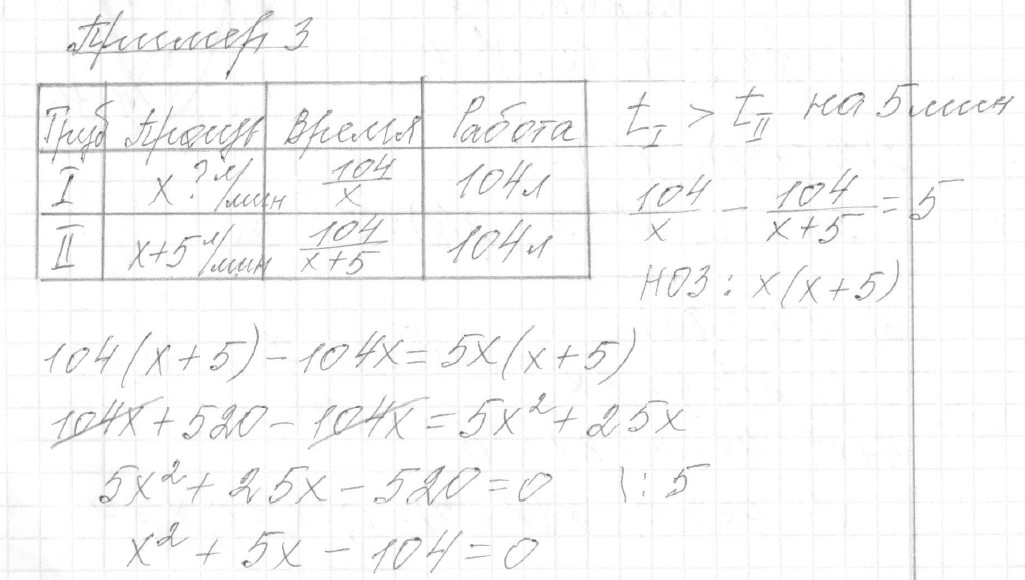 Пример 3
Труб Произв Время Работа
I x ? л/мин 104/x 104л
II x+5 л/мин 104/(x+5) 104л
t_I > t_II на 5 мин
104/x - 104/(x+5) = 5
НОЗ: x(x+5)
104(x+5) - 104x = 5x(x+5)
104x + 520 - 104x = 5x² + 25x
5x² + 25x - 520 = 0 \: 5
x² + 5x - 104 = 0